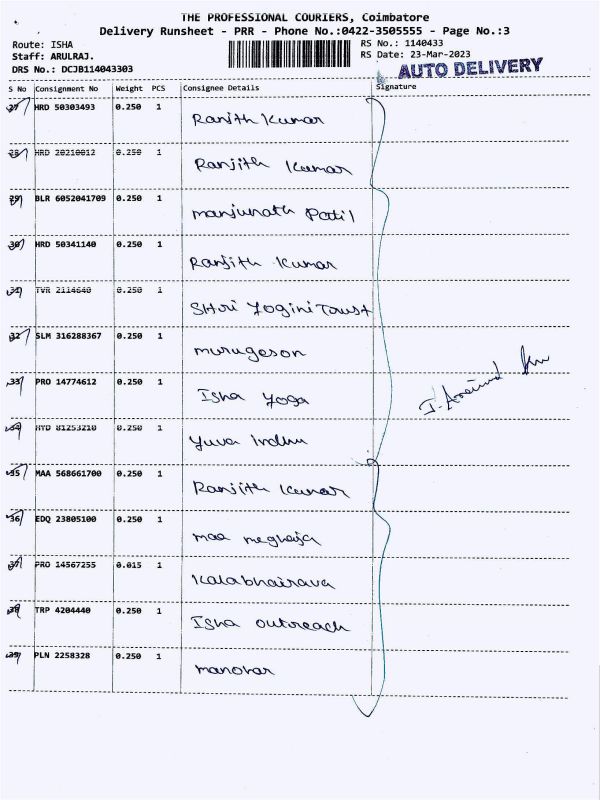 THE PROFESSIONAL COURIERS, Coimbatore
Delivery Runsheet - PRR - Phone No.:0422-3505555 - Page No.:3
Route: ISHA
Staff: ARULRAJ.
DRS No.: DCJB114043303
RS No.: 1140433
RS Date: 23-Mar-2023
AUTO DELIVERY
S No Consignment No Weight PCS Consignee Details Signature
27 HRD 50303493 0.250 1 Ranjith Kumar
28 HRD 20210012 0.250 1 Ranjith Kumar
29 BLR 6052041709 0.250 1 manjunath Patil
30 HRD 50341140 0.250 1 Ranjith Kumar
31 TVR 2114640 0.250 1 SHri Yogini Trust
32 SLM 316288367 0.250 1 murugeson
33 PRO 14774612 0.250 1 Isha Yoga
34 HYD 81253210 0.250 1 Yuva Indhu
35 MAA 568661700 0.250 1 Ranjith Kumar
36 EDQ 23805100 0.250 1 maa meghaja
37 PRO 14567255 0.015 1 Kalabhairava
38 TRP 4204440 0.250 1 Isha outreach
39 PLN 2258328 0.250 1 manohar